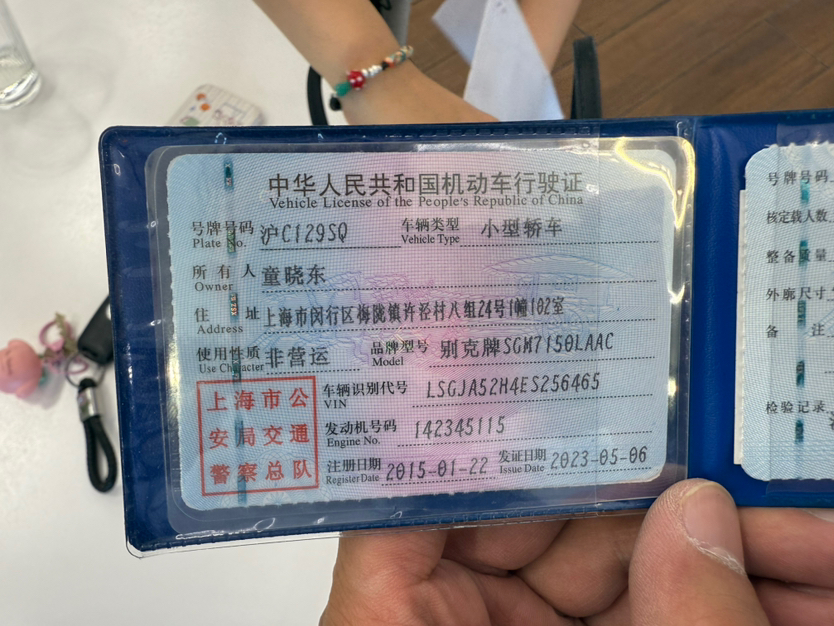 中华人民共和国机动车行驶证
Vehicle License of the People's Republic of China
号牌号码 沪C129SQ 车辆类型 小型轿车
Plate No. Vehicle Type
所有人 童晓东
Owner
住址 上海市闵行区梅陇镇许泾村八组24号1幢102室
Address
使用性质 非营运 品牌型号 别克牌SGM7150LAAC
Use Character Model
车辆识别代号 LSGJA52H4ES256465
VIN
发动机号码 142345115
Engine No.
注册日期 2015-01-22 发证日期 2023-05-06
Register Date Issue Date
上海市公
安局交通
警察总队
号牌号码
核定载人数
整备质量
外廓尺寸
备注
检验记录